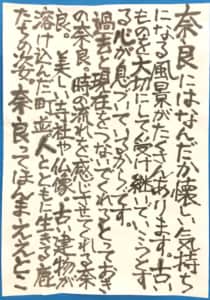 奈良にはなんだか懐しい気持ち
になる風景がたくさんあります。古い
ものを大切にして受け継いでいこうとす
る心が息づいているからです。
過去と現在をつないでくれるとっておき
の奈良、時の流れを感じさせてくれる奈
良。美しい寺社や仏像・古い建物が
溶け込んだ町並、人とともに生きる鹿
たちの姿。奈良ってほんまええとこ